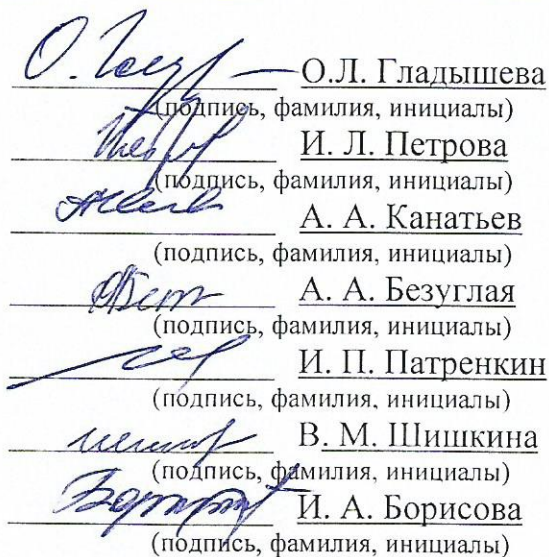 О.Л. Гладышева
(подпись, фамилия, инициалы)
И. Л. Петрова
(подпись, фамилия, инициалы)
А. А. Канатьев
(подпись, фамилия, инициалы)
А. А. Безуглая
(подпись, фамилия, инициалы)
И. П. Патренкин
(подпись, фамилия, инициалы)
В. М. Шишкина
(подпись, фамилия, инициалы)
И. А. Борисова
(подпись, фамилия, инициалы)